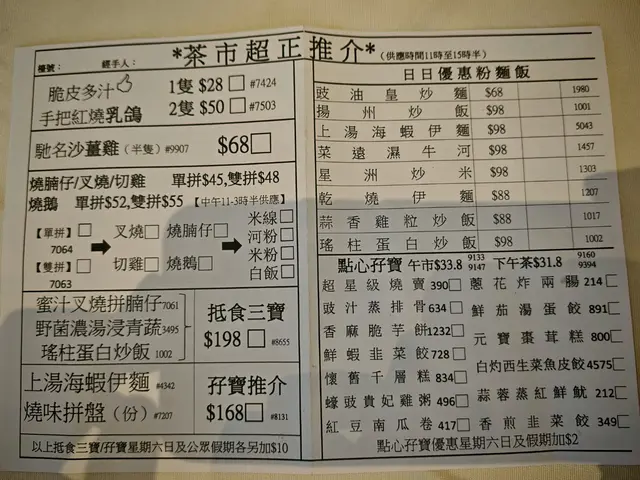 *茶市超正推介* (供應時間11時至15時半)
檯號： 經手人：
脆皮多汁 1隻 $28 #7424
手把紅燒乳鴿 2隻 $50 #7503
馳名沙薑雞 (半隻) #9907 $68
燒腩仔/叉燒/切雞 單拼$45,雙拼$48
燒鵝 單拼$52,雙拼$55 【中午11-3時半供應】
【單拼】
7064
【雙拼】
7063
叉燒 燒腩仔
切雞 燒鵝
米線
河粉
米粉
白飯
蜜汁叉燒拼腩仔 7061
野菌濃湯浸青蔬 3495
瑤柱蛋白炒飯 1002
抵食三寶
$198 #8655
上湯海蝦伊麵 #4342
燒味拼盤（份） #7207
孖寶推介
$168 #8131
以上抵食三寶/孖寶星期六日及公眾假期各另加$10
日日優惠粉麵飯
豉油皇炒麵 $68 1980
揚州炒飯 $98 1001
上湯海蝦伊麵 $98 5043
菜遠濕牛河 $98 1457
星洲炒米 $98 1303
乾燒伊麵 $88 1207
蒜香雞粒炒飯 $88 1017
瑤柱蛋白炒飯 $98 1002
點心孖寶 午市$33.8 9133 9147 下午茶$31.8 9160 9394
超星級燒賣 390 蔥花炸兩腸 214
豉汁蒸排骨 634 鮮茄湯蛋餃 891
香麻脆芋餅 1232 元寶棗茸糕 800
鮮蝦韭菜餃 728 白灼西生菜魚皮餃 4575
懷舊千層糕 834 蒜蓉蒸紅鮮魷 212
蠔豉貴妃雞粥 496 香煎韭菜餃 349
紅豆南瓜卷 417
點心孖寶優惠星期六日及假期加$2